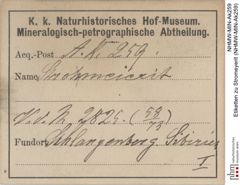 K. k. Naturhistorisches Hof-Museum.
Mineralogisch-petrographische Abtheilung.
Acq.-Post A. N. 259.
Name Stromeierit
V. d. N. 2825. (59/73)
Fundort Schlangenberg Sibirien
I
NHMW-MIN-Ak259
Etiketten zu Stromeyerit
(NHMW-MIN-Ak259)